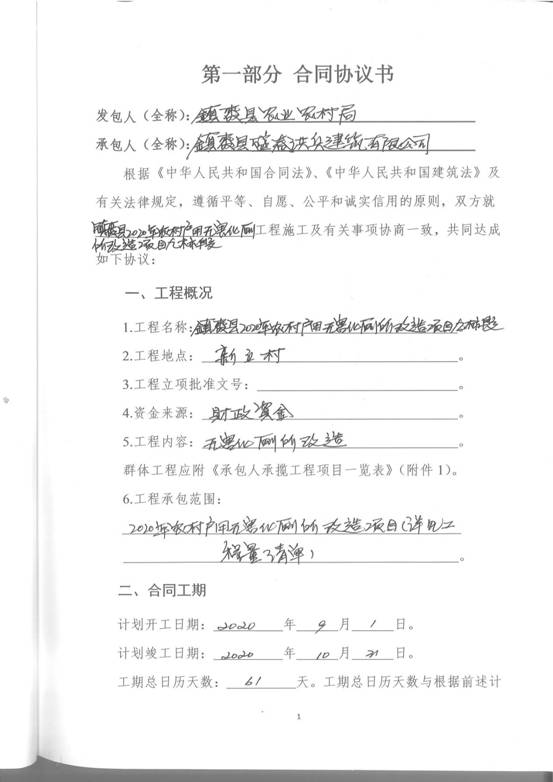 第一部分 合同协议书
发包人（全称）：镇赉县农业农村局
承包人（全称）：镇赉县建筑有限公司
根据《中华人民共和国合同法》、《中华人民共和国建筑法》及
有关法律规定，遵循平等、自愿、公平和诚实信用的原则，双方就
镇赉县2020年农村户用无害化厕工程施工及有关事项协商一致，共同达成
所改造项目
如下协议：
一、工程概况
1.工程名称：镇赉县2020年农村户用无害化厕所改造项目
2.工程地点：新立村。
3.工程立项批准文号：。
4.资金来源：财政资金。
5.工程内容：无害化厕所改造。
群体工程应附《承包人承揽工程项目一览表》（附件1）。
6.工程承包范围：
2020年农村户用无害化厕所改造项目（详见工
程量清单）。
二、合同工期
计划开工日期：2020年9月1日。
计划竣工日期：2020年10月31日。
工期总日历天数：61天。工期总日历天数与根据前述计
1